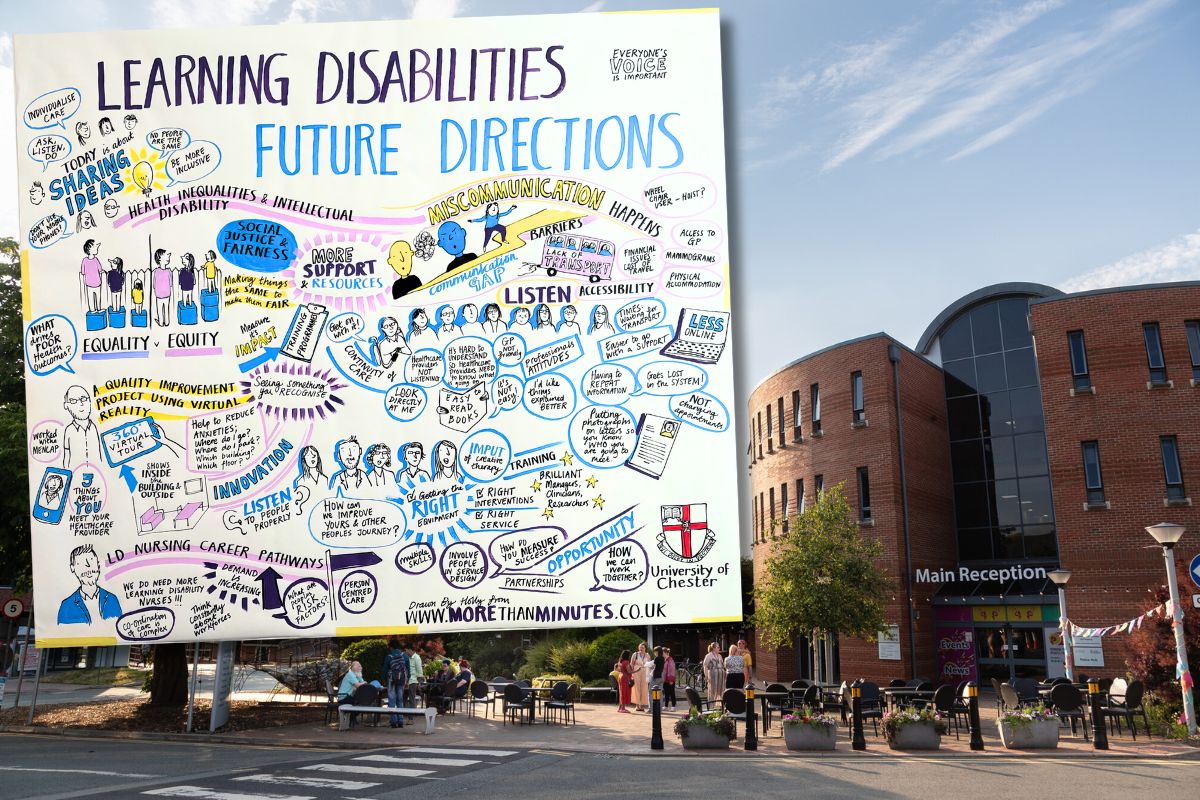 LEARNING DISABILITIES
FUTURE DIRECTIONS
EVERYONE'S
VOICE
IS IMPORTANT
INDIVIDUALISE
CARE
ASK,
LISTEN,
DO
TODAY is about
SHARING
IDEAS
NO PEOPLE
ARE THE
SAME
BE MORE
INCLUSIVE
HEALTH INEQUALITIES & INTELLECTUAL
DISABILITY
SOCIAL
JUSTICE &
FAIRNESS
MORE
SUPPORT
& RESOURCES
Making things
the SAME to
make them FAIR
EQUALITY v EQUITY
MISCOMMUNICATION
HAPPENS
BARRIERS
LACK OF
TRANSPORT
communication
GAP
WHEEL
CHAIR
USER - HOIST?
ACCESS TO
GP
MAMMOGRAMS
FINANCIAL
ISSUES -
COST OF
TRAVEL
PHYSICAL
ACCOMMODATION
LISTEN
ACCESSIBILITY
WHAT
drives
POOR
Health
OUTCOMES?
Measure
its
IMPACT
TRAINING
PROGRAMME
Get on
with it!
CONTINUITY OF
CARE
Healthcare
Providers
NOT
LISTENING
LOOK
DIRECTLY
AT ME
IT'S HARD to
UNDERSTAND
SO Healthcare
Providers NEED
to KNOW what
is going on
EASY to
READ
BOOKS
GP
NOT
friendly
IT'S
easy!
Professionals
ATTITUDES
I'd like
things
explained
BETTER
TIMES-
Waiting for
TRANSPORT
Easier to go
with a SUPPORT
LESS
ONLINE
Having to
REPEAT
INFORMATION
Gets LOST
in the SYSTEM!
NOT
changing
appointments
Putting
photographs
on letters so
you know
WHO you
are going
to meet
A QUALITY IMPROVEMENT
PROJECT USING VIRTUAL
REALITY
Seeing something
you RECOGNISE
Worked
with a
MENCAP
360°
VIRTUAL
TOUR
Help to REDUCE
ANXIETIES;
Where do I go?
Where do I park?
Which building?
Which floor?
SHOWS
INSIDE
the
BUILDING &
OUTSIDE
INNOVATION
3
THINGS
ABOUT
YOU
MEET YOUR
HEALTHCARE
PROVIDER
LISTEN
TO PEOPLE
PROPERLY
HOW can
we IMPROVE
YOURS & OTHER
PEOPLES JOURNEY?
IMPUT
of creative
therapy
TRAINING
Getting the
RIGHT
EQUIPMENT
RIGHT
INTERVENTIONS
RIGHT
SERVICE
BRILLIANT
Managers,
Clinicians,
Researchers
LD NURSING CAREER PATHWAYS
WE DO NEED MORE
LEARNING DISABILITY
NURSES!!!
DEMAND
IS
INCREASING
Co-ordination
of care is
complex
Think
constantly
about
workforces
What are
people's
RISK
FACTORS?
PERSON
CENTRED
CARE
multiple
SKILLS
INVOLVE
PEOPLE
IN SERVICE
DESIGN
HOW DO
YOU MEASURE
SUCCESS?
PARTNERSHIPS
OPPORTUNITY
HOW
we can
WORK
TOGETHER?
University of
Chester
Drawn By Holly from
WWW.MORETHANMINUTES.CO.UK
Main Reception
Events
News
5